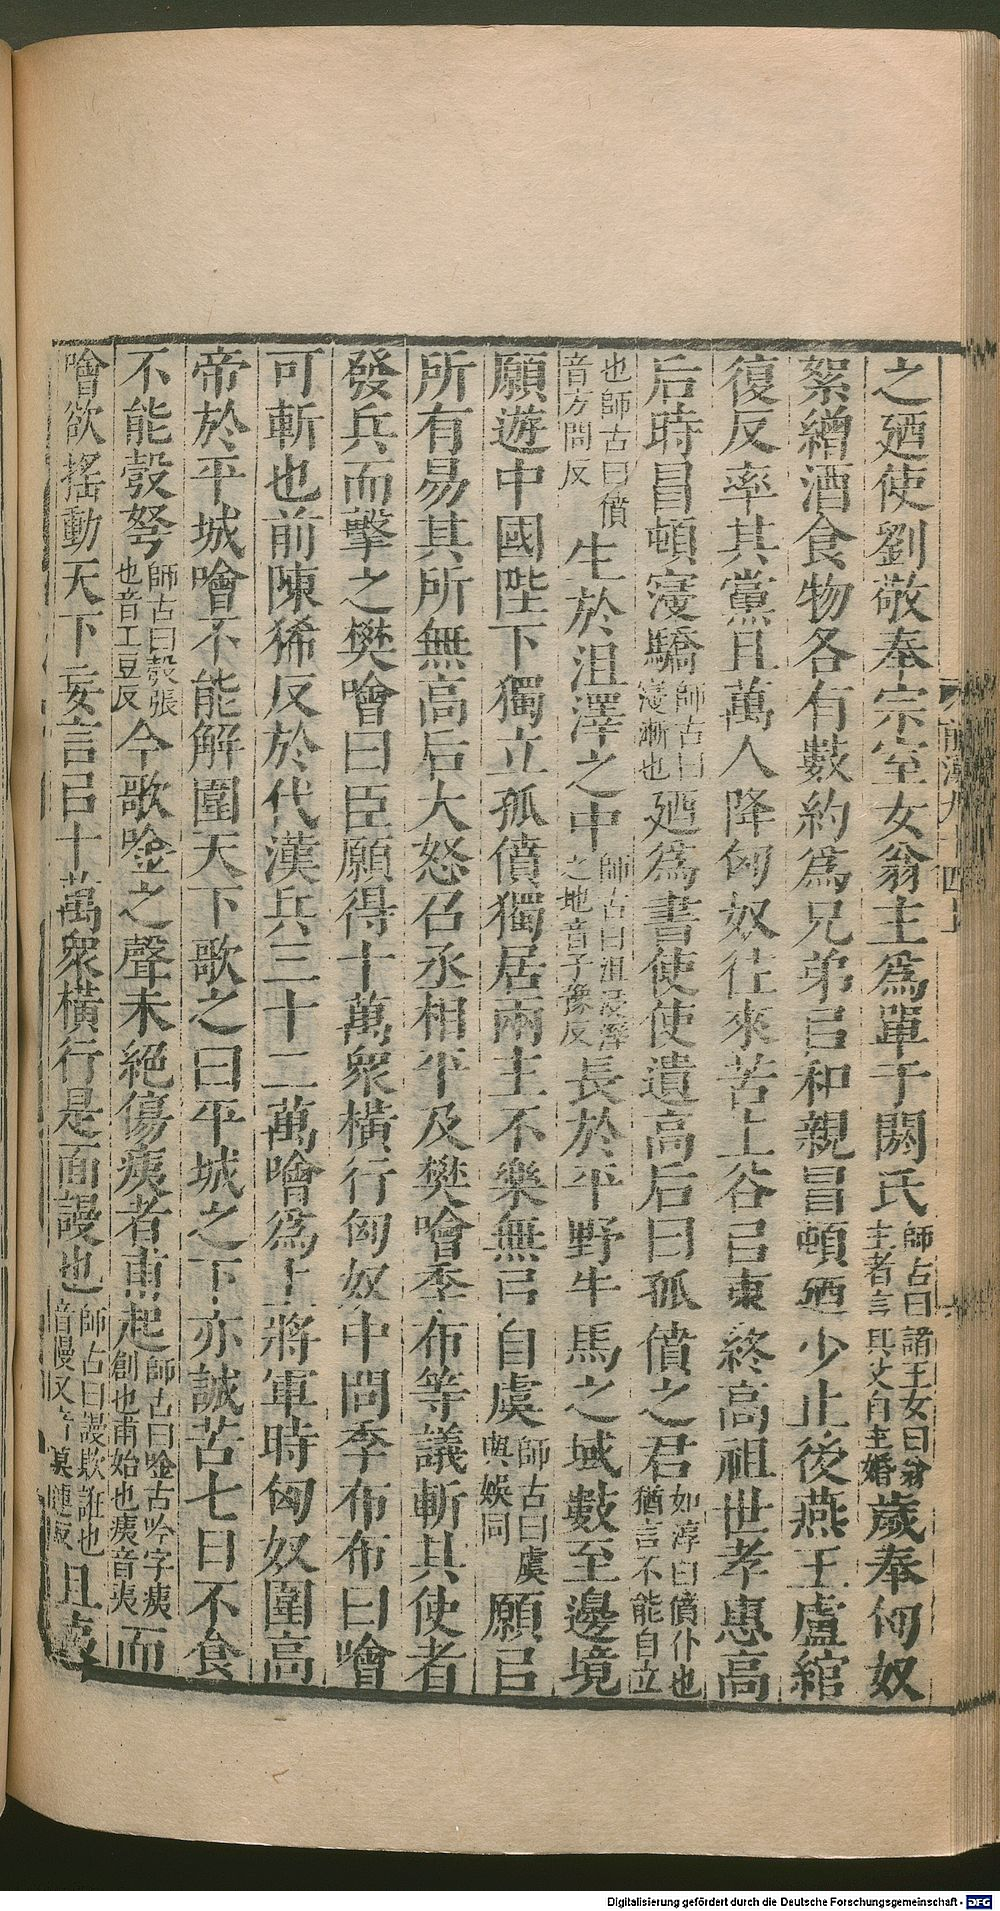 之廼使劉敬奉宗室女翁主爲單于閼氏師古曰諸王女曰翁主者言其父自主婚歲奉匈奴
絮繒酒食物各有數約爲兄弟㠯和親冒頓廼少止後燕王盧綰
復反率其黨且萬人降匈奴往來苦上谷㠯東終高祖世孝惠高
后時冒頓寖驕師古曰寖漸也廼爲書使使遺高后曰孤僨之君如淳曰僨仆也猶言不能自立
也師古曰僨音方問反生於沮澤之中師古曰沮浸溼之地音子豫反長於平野牛馬之域數至邊境
願遊中國陛下獨立孤僨獨居兩主不樂無㠯自虞師古曰虞與娛同願㠯
所有易其所無高后大怒召丞相平及樊噲季布等議斬其使者
發兵而擊之樊噲曰臣願得十萬衆橫行匈奴中問季布布曰噲
可斬也前陳豨反於代漢兵三十二萬噲爲上將軍時匈奴圍高
帝於平城噲不能解圍天下歌之曰平城之下亦誠苦七日不食
不能彀弩師古曰彀張也音工豆反今歌唫之聲未絕傷痍者甫起師古曰唫古吟字痍創也甫始也痍音夷而
噲欲搖動天下妄言㠯十萬衆橫行是面謾也師古曰謾欺誑也音慢又音莫連反且夷
Digitalisierung gefördert durch die Deutsche Forschungsgemeinschaft - DFG